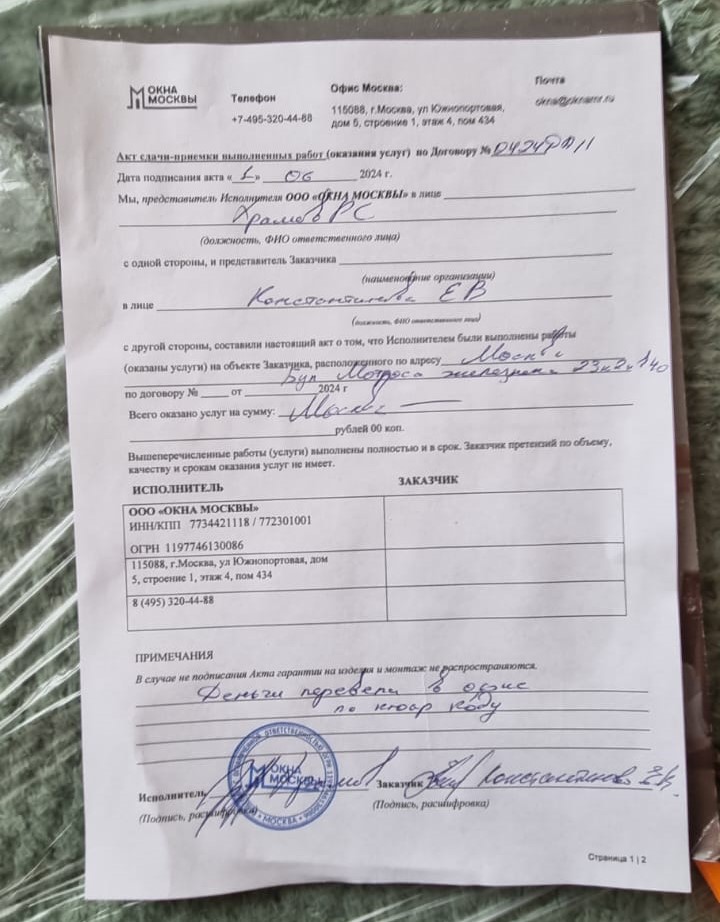 ОКНА
МОСКВЫ
Телефон
+7-495-320-44-88
Офис Москва:
115088, г.Москва, ул Южнопортовая,
дом 5, строение 1, этаж 4, пом 434
Почта
Акт сдачи-приемки выполненных работ (оказания услуг) по Договору №
Дата подписания акта «1» 06 2024 г.
Мы, представитель Исполнителя ООО «ОКНА МОСКВЫ» в лице
Храмов РС
(должность, ФИО ответственного лица)
с одной стороны, и представитель Заказчика
(наименование организации)
в лице Константинова ЕВ
(должность, ФИО ответственного лица)
с другой стороны, составили настоящий акт о том, что Исполнителем были выполнены работы
(оказаны услуги) на объекте Заказчика, расположенного по адресу Москва
Бул Матроса
по договору № ____ от ____ 2024 г
Всего оказано услуг на сумму:
рублей 00 коп.
Вышеперечисленные работы (услуги) выполнены полностью и в срок. Заказчик претензий по объему,
качеству и срокам оказания услуг не имеет.
ИСПОЛНИТЕЛЬ
ЗАКАЗЧИК
ООО «ОКНА МОСКВЫ»
ИНН/КПП 7734421118 / 772301001
ОГРН 1197746130086
115088, г.Москва, ул Южнопортовая, дом
5, строение 1, этаж 4, пом 434
8 (495) 320-44-88
ПРИМЕЧАНИЯ
В случае не подписания Акта гарантии на изделия и монтаж не распространяются.
Деньги перевели в офис
по кюар коду
ОКНА
МОСКВЫ
МОСКВА
Исполнитель Храмов
Заказчик Константинова Е.В.
(Подпись, расшифровка)
(Подпись, расшифровка)
Страница 1 | 2